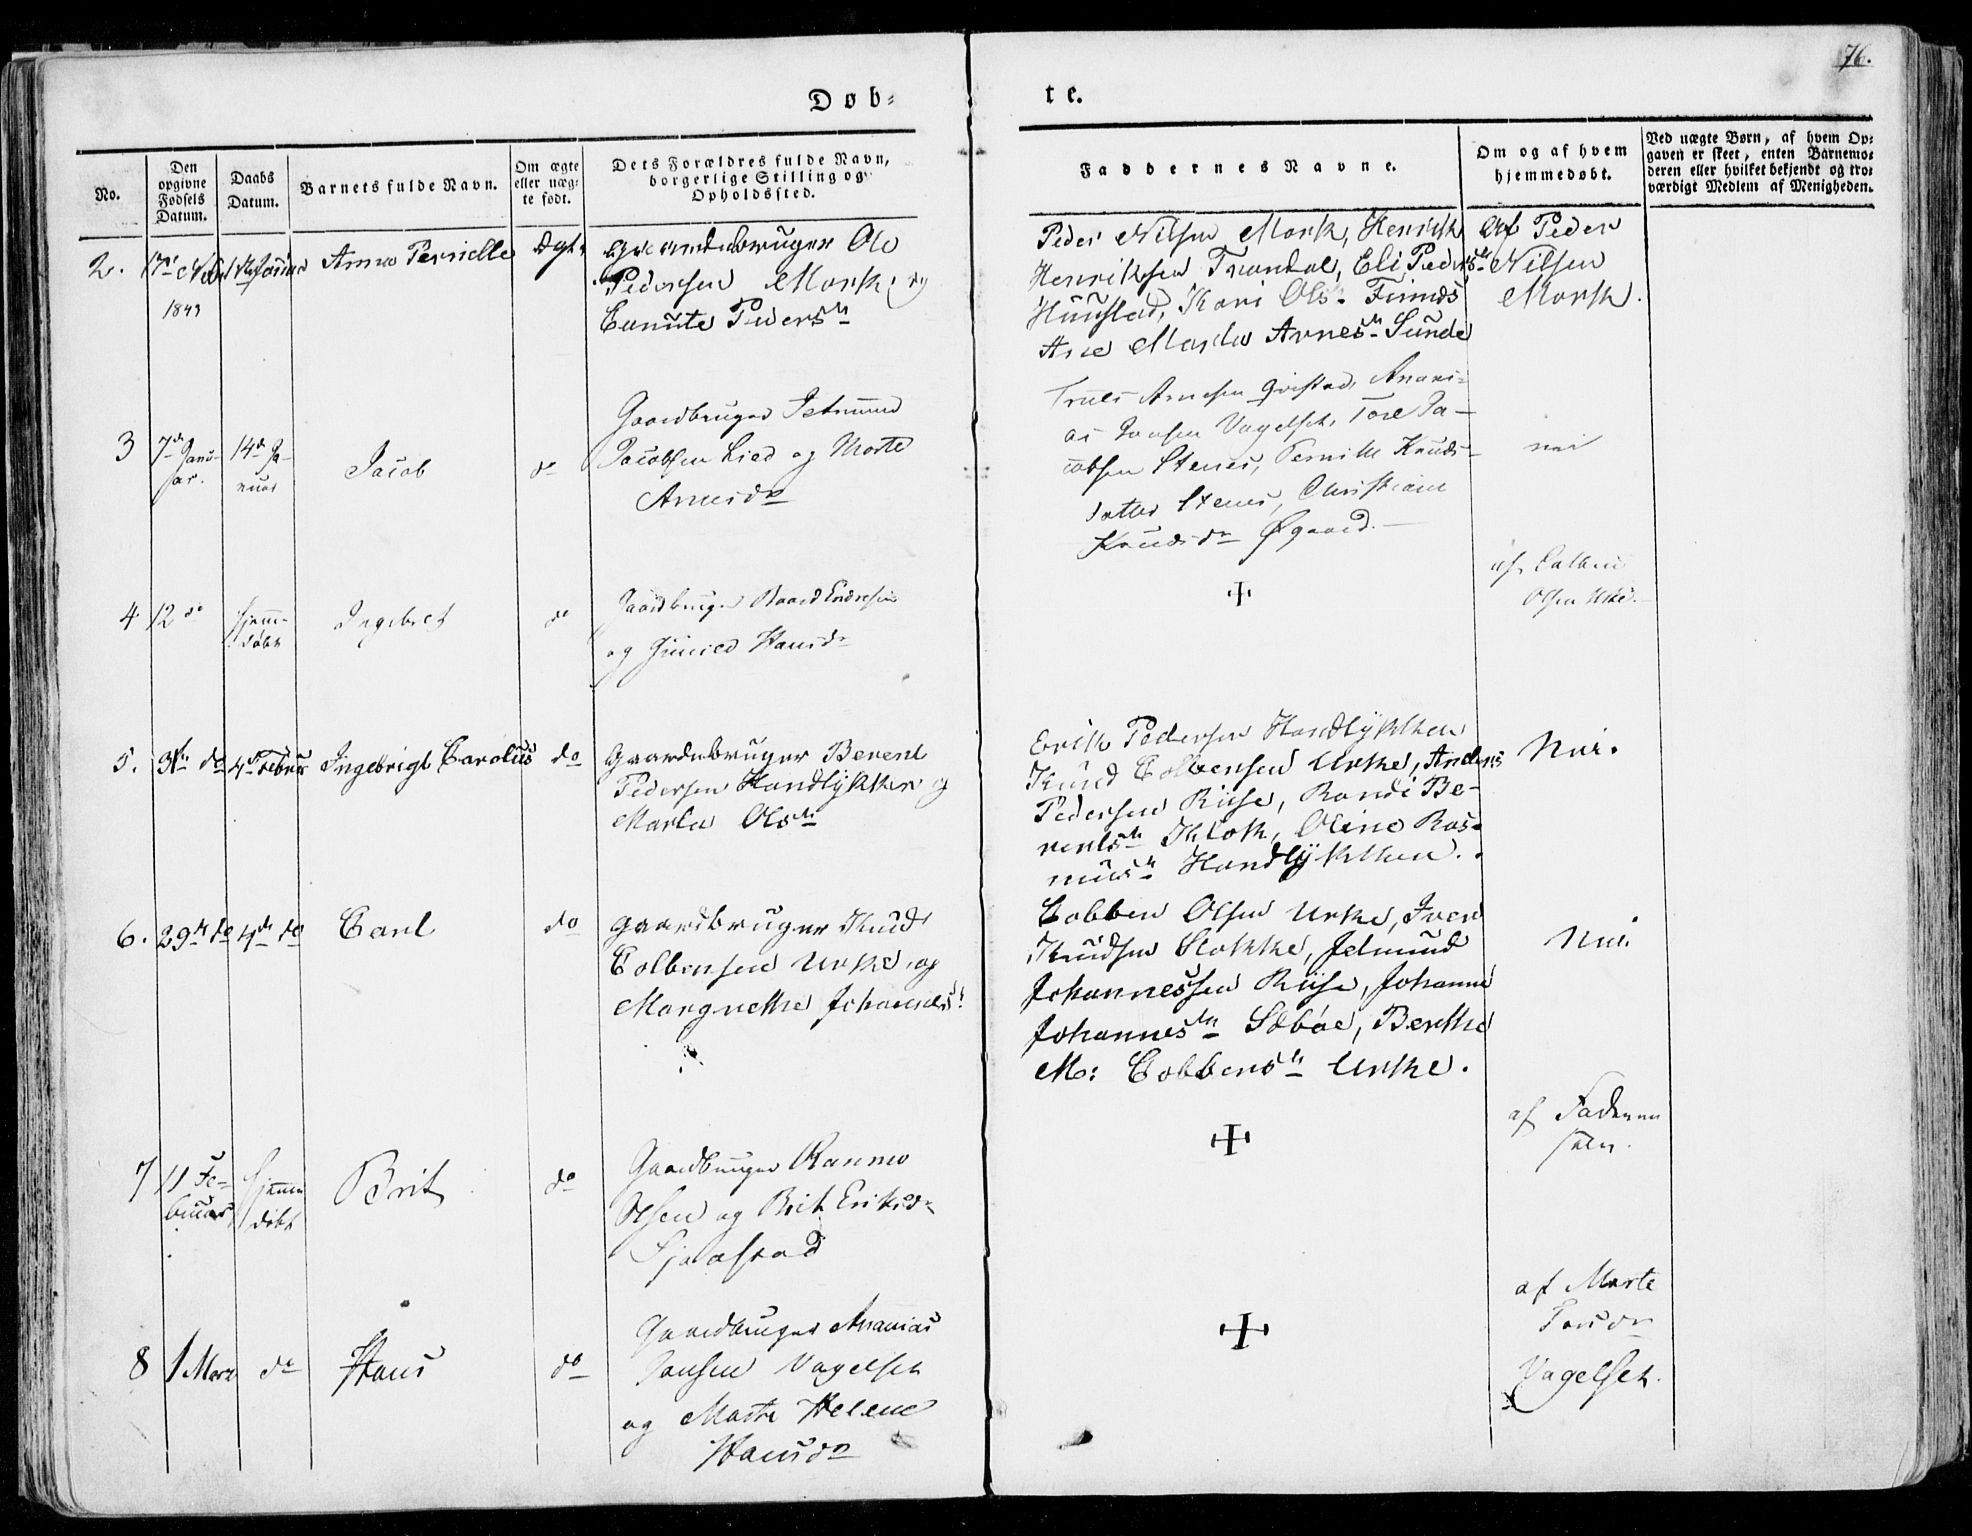 76.
Døb-
te.
No.
Den
opgivne
Fødsels
Datum.
Daabs
Datum.
Barnets fulde Navn.
Om ægte
eller uæg-
te født.
Dets Forældres fulde Navn,
borgerlige Stilling og
Opholdssted.
Faddernes Navne.
Om og af hvem
hjemmedøbt.
Ved uægte Børn, af hvem Op-
gaven er skeet, enten Barnemo-
deren eller hvilket bekjendt og tro-
værdigt Medlem af Menigheden.
2.
1849
Anna Pernille
Ægte
Gaardebruger Ole
Pedersen Mork, og
Eanute Peders dr
Peder Nilsen Mork, Henrik
Henriksen Trandal, Eli Peders dr
Huustad, Kari Ols. Finnes
Ane Marta Arnes dr Sunde
Af Peder
Nilsen
Mork.
3
7de Janu-
ar.
14de Ja-
nuar
Jacob
do
Gaardbruger Jetmund
Jacobsen Lied og Marte
Arnesdr
Truls Arnesen Qvistad, Anani-
as Jansen Vagelset, Tore Ja-
cobsen Stenes, Pernille Knuds-
datter Stenes, Christiane
Knudsdr Øgaard.
nei
4
12 do
Hjem-
døbt
Ingebret
do
Gaardbruger Baard Endresen
og Gunild Hansdr
+
af Colben
Olsen Urke.
5.
31te do
4de Febru
Ingebrigt Carolus
do
Gaardebruger Berent
Pedersen Handlykken og
Marta Ols dr
Erik Pedersen Handlykken
Knud Colbensen Urke, Anders
Pedersen Riise, Randi Be-
rents dr Klok, Oline Ras-
mus dr Handlykken.
Nei.
6.
29de do
4de do
Carl
do
Gaardbruger Knud
Colbensen Urke, og
Margrethe Johannes dr
Cobben Olsen Urke, Iver
Knudsen Slokke, Jetmund
Johannessen Riise, Johanne
Johannes dr Sæbøe, Berthe
M: Cobbens dr Urke.
Nei.
7
11 Fe-
bruar
Hjemme
døbt
Brit
do
Gaardbruger Rasmus
Olsen og Brit Eriksdr
+
af Faderen
selv.
8
1 Marz
do
Hans
do
Gaardbruger Ananias
Jansen Vagelset
og Marte Helene
Hansdr
+
af Marte
Vagelset.